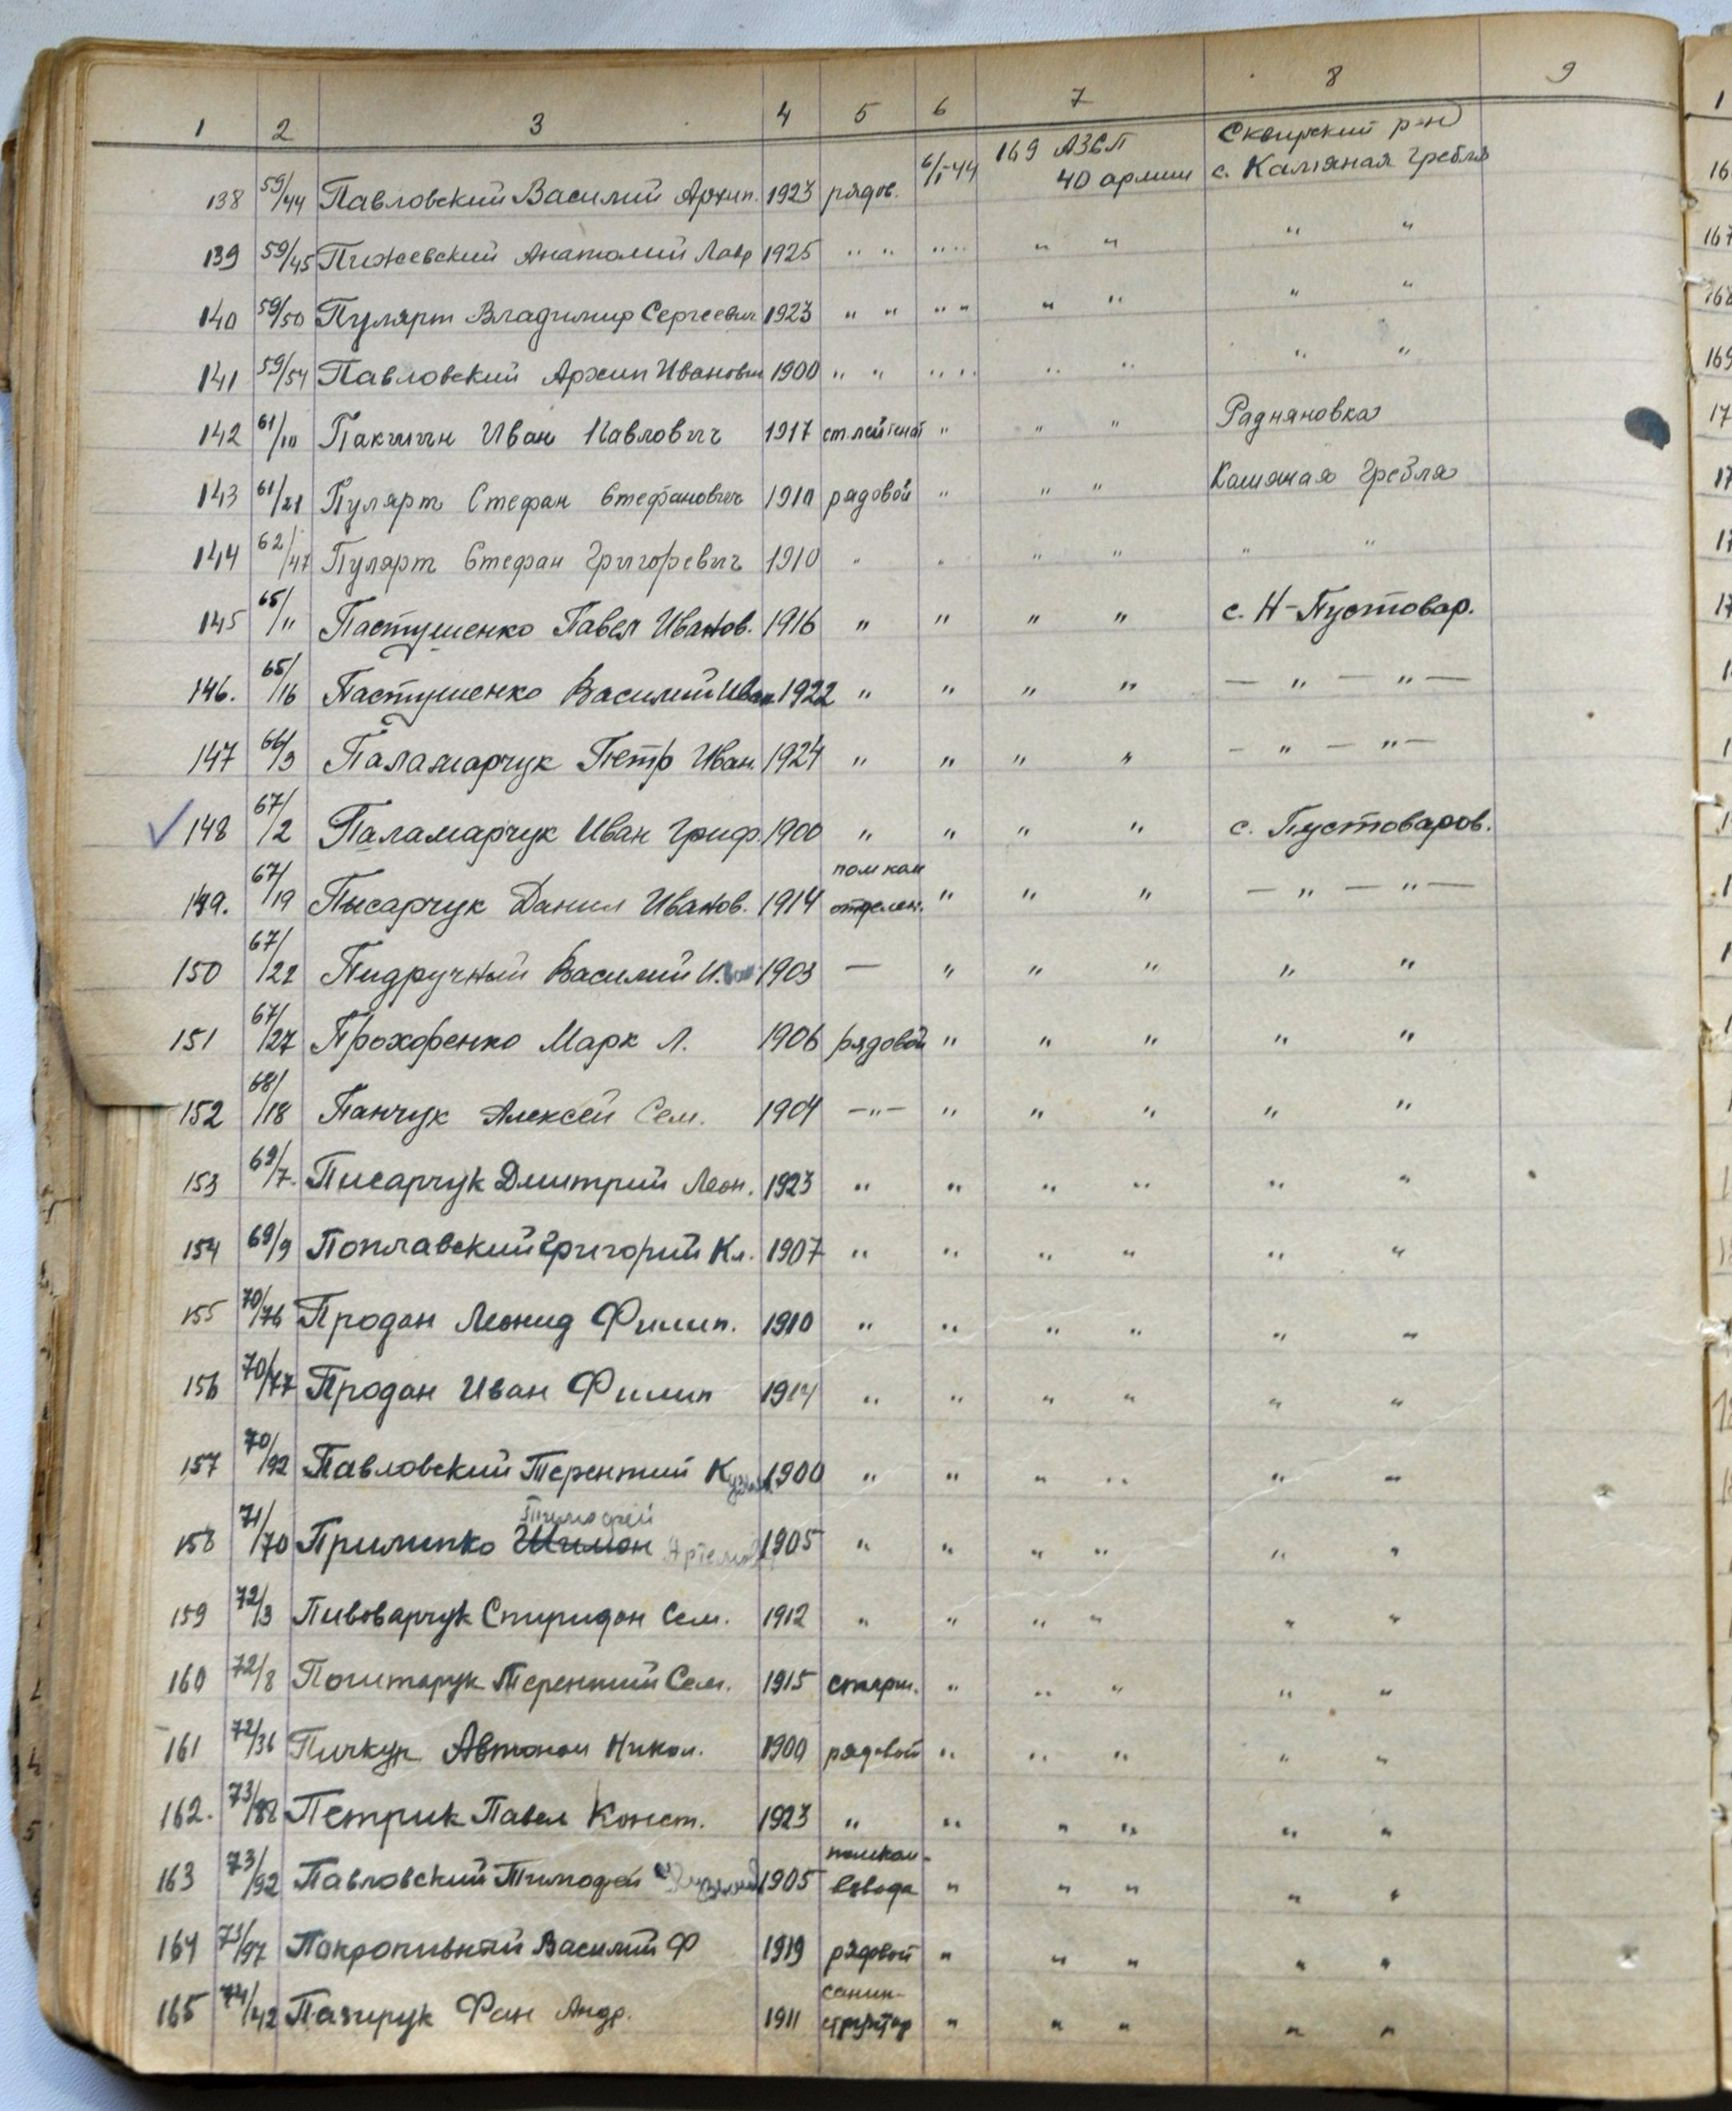 1 2 3 4 5 6 7 8 9
138 59/44 Павловский Василий Архип. 1923 рядов. 6/I-44 169 АЗСП 40 армии Сквирский р-н с. Камяная Гребля
139 59/45 Пижевский Анатолий Лавр 1925 " " " " " " " "
140 59/50 Пулярт Владимир Сергеевич 1923 " " " " " " " "
141 59/54 Павловский Архип Иванович 1900 " " " " " " " "
142 61/10 Пакшин Иван Павлович 1917 ст. лейтенат " " " Радняновка
143 61/21 Пулярт Стефан Стефанович 1910 рядовой " " " Камяная Гребля
144 62/47 Пулярт Стефан Григоревич 1910 " " " " " "
145 65/11 Пастушенко Павел Иванов. 1916 " " " " с. Н-Пустовар.
146. 65/16 Пастушенко Василий Иван 1922 " " " " — " — " —
147 66/3 Паламарчук Петр Иван. 1924 " " " " — " — " —
148 67/2 Паламарчук Иван Гриф. 1900 " " " " с. Пустоваров.
149. 67/19 Пысарчук Данил Иванов. 1914 пом ком отделен. " " " — " — " —
150 67/22 Пидручный Василий И. 1903 — " " " " "
151 67/27 Прохоренко Марк Л. 1906 рядовой " " " " "
152 68/18 Панчук Алексей Сем. 1904 —"— " " " " "
153 69/7. Писарчук Дмитрий Леон. 1923 " " " " " "
154 69/9 Поплавский Григорий Кл. 1907 " " " " " "
155 70/76 Продан Леонид Филип. 1910 " " " " " "
156 70/77 Продан Иван Филип 1914 " " " " " "
157 70/92 Павловский Терентий Кузьм 1900 " " " " " "
Тимофей
158 71/70 Прилипко Шимон Артемов 1905 " " " " " "
159 72/3 Пивоварчук Спиридон Сем. 1912 " " " " " "
160 72/8 Поштарук Терентий Сем. 1915 старш. " " " " "
161 72/36 Пичкур Автоном Никол. 1900 рядовой " " " " "
162. 73/88 Петрик Павел Конст. 1923 " " " " " "
163 73/92 Павловский Тимофей 1905 помком- взвода " " " " "
164 73/97 Покропивный Василий Ф 1919 рядовой " " " " "
165 74/42 Андр. 1911 санин- структор " " " " "